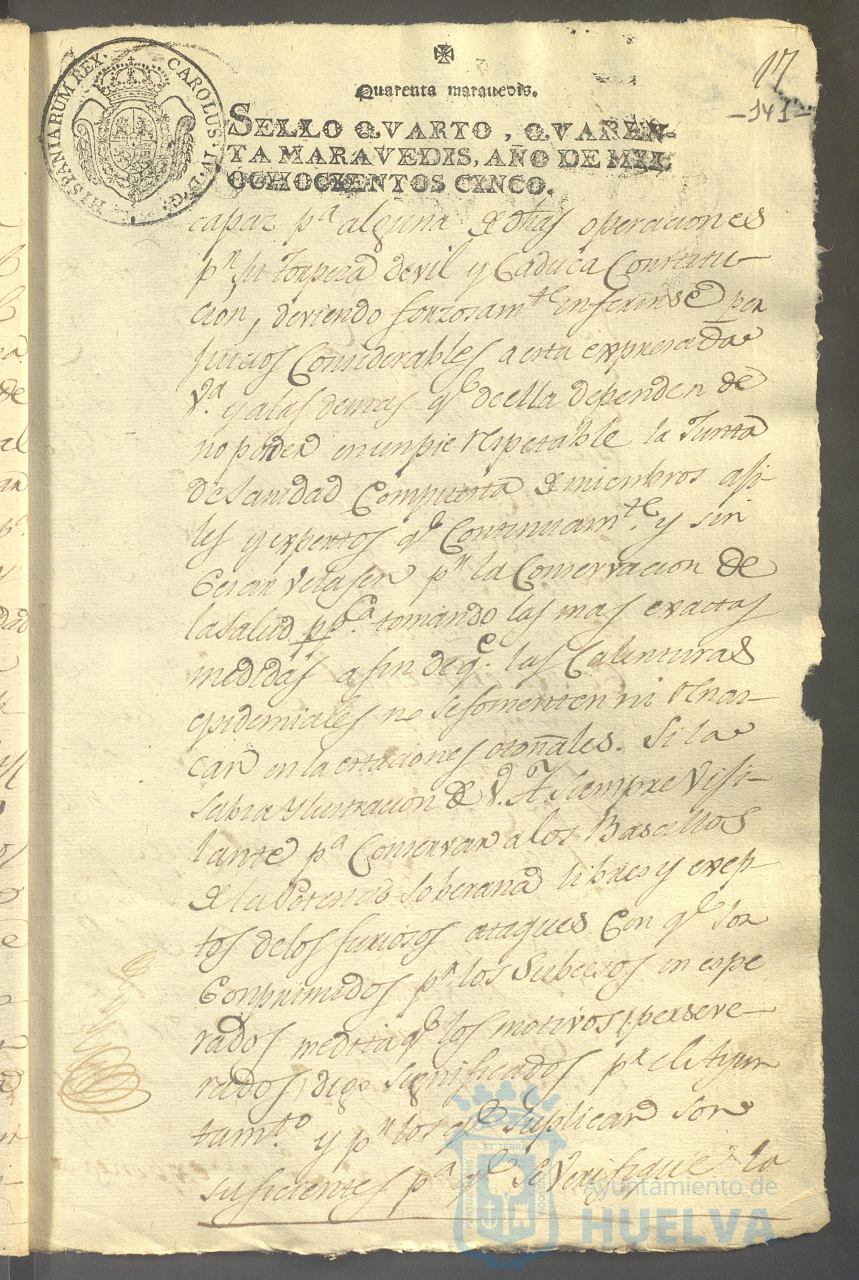 17
-141-
HISPANIARUM REX. CAROLUS IV D.G.
Quarenta maravedis.
SELLO QVARTO, QVAREN-
TA MARAVEDIS, AÑO DE MIL
OCHOCIENTOS CINCO.
capaz pª alguna de otras operaciones
pr. su torpeza devil y Caduca Constitu-
cion, deviendo forzosamte. inferirse per
juicios Considerables a esta expresada
Vª. y alas demas qe. de ella dependen de
no poder en un pie respetable la Junta
de Sanidad Compuesta de miembros agi-
les y expertos qe. Continuamte. y sin
Cesar velasen pr. la Conservacion de
la salud ppca. tomando las mas exactas
medidas a fin de qe. las Calenturas
epidemiales no se fomenten ni
en la estaciones otoñales. Si la
Sabia Ylustracion de V. A. siempre Vigi-
lante pª Conservar a los Basallos
de la Potencia Soberana libres y exep-
tos de los furiosos ataques Con qe. son
Conprimados pr. los Subcesos in espe
rados medita qe. los motivos, persere-
rados, digo significados pr. el Ayun
tamto. y pr. los qe. Suplican son
suficientes pª qe. Se Verifique la
Ayuntamiento de
HUELVA